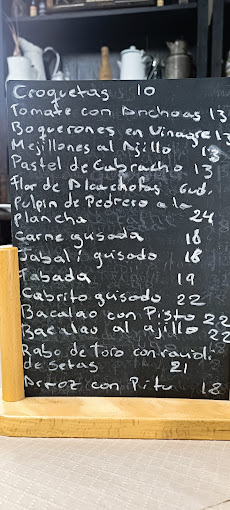 Croquetas 10
Tomate con Anchoas 13
Boquerones en Vinagre 13
Mejillones al Ajillo 13
Pastel de Cabracho 13
Flor de Alcachofas 6ud.
Pulpin de Pedrero a la
plancha 24
Carne guisada 18
Jabalí guisado 18
Fabada 19
Cabrito guisado 22
Bacalao con Pisto 22
Bacalao al ajillo 22
Rabo de toro con ravioli
de setas 21
Arroz con Pitu 18